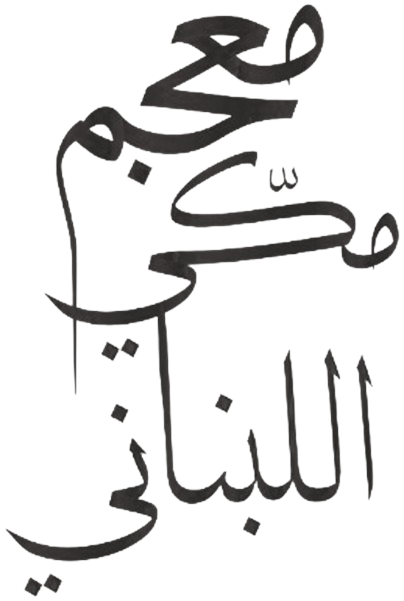 معجم
مكّي
اللبناني